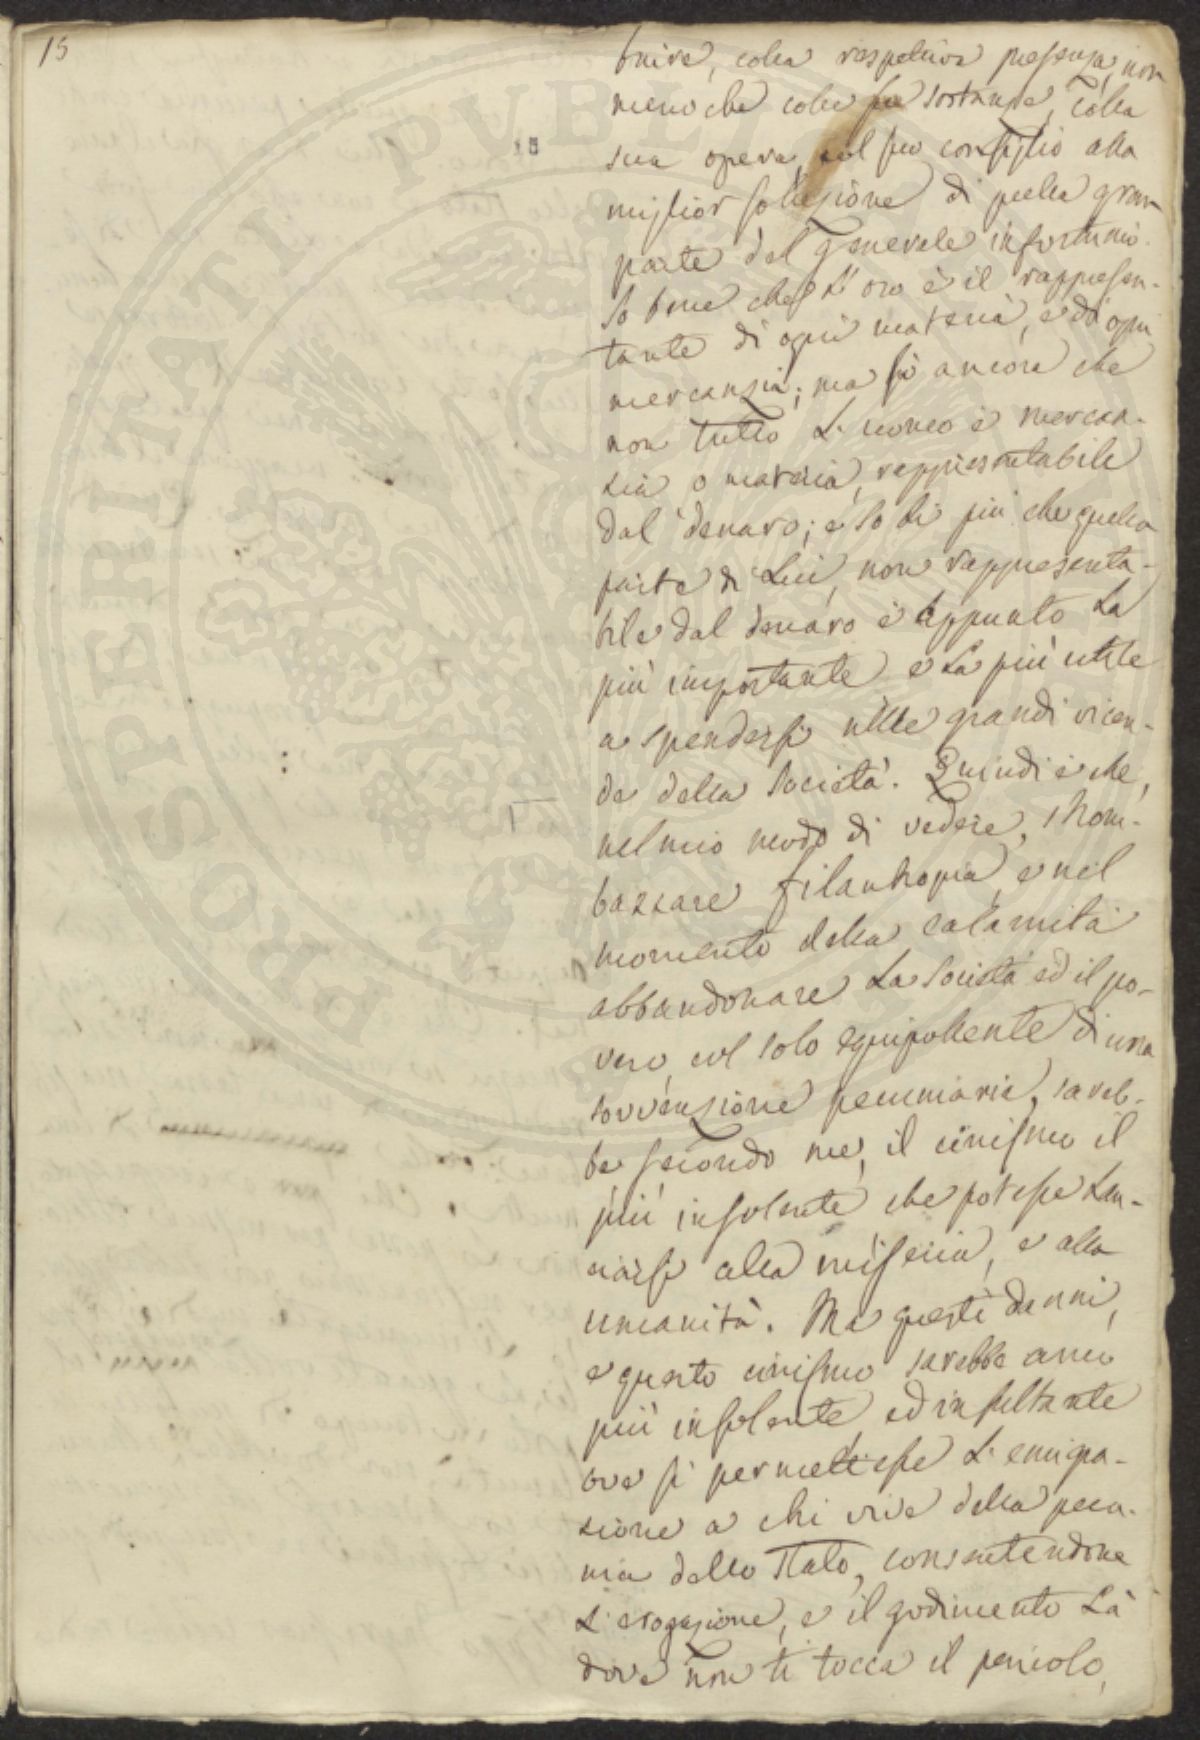 15
buire, colla rispettiva presenza, non
meno che colle sue sostanze, colla
sua opera, col suo consiglio alla
miglior soluzione di quella gran
parte del generale infortunio.
So bene che l'oro è il rappresen-
tante di ogni materia, e di ogni
mercanzia; ma so ancora che
non tutto l'uomo è mercan-
zia o materia rappresentabile
dal denaro; e so di più che quella
parte di Lui, non rappresenta-
bile dal denaro è appunto la
più importante e la più utile
a spendersi nelle grandi vicen-
de della Società. Quindi è che,
nel mio modo di vedere, strom-
bazzare filantropia, e nel
momento della calamità
abbandonare la Società ed il po-
vero col solo equipollente di una
sovvenzione pecuniaria, sareb-
be, secondo me, il cinismo il
più insolente che potesse lan-
ciarsi alla miseria, e alla
umanità. Ma questi danni,
e questo cinismo sarebbe anco
più insolente ed insultante
ove si permettesse l'emigra-
zione a chi vive della pecu-
nia dello Stato, consentendone
l'erogazione, e il godimento là
dove non ti tocca il pericolo,
PROSPERITATI PUBLICAE
15